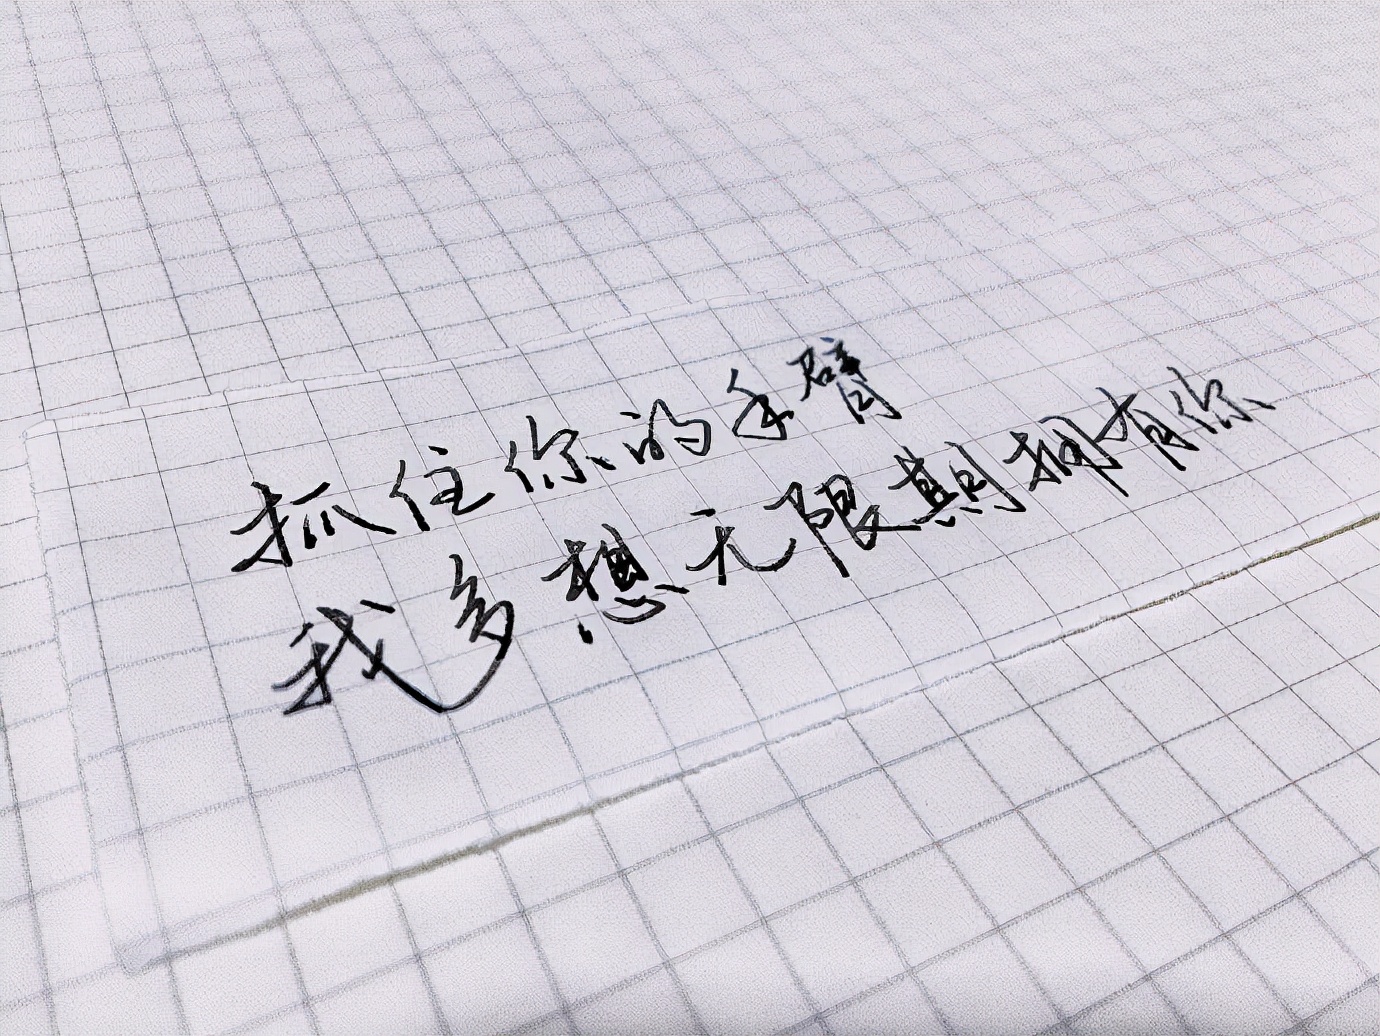 抓住你的手臂
我多想无限期拥有你